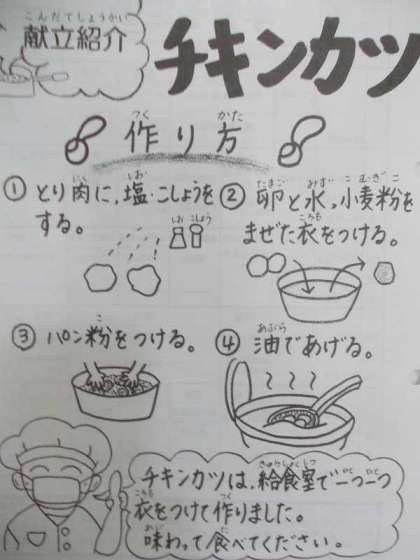 こんだてしょうかい
献立紹介
チキンカツ
つく かた
作り方
にく しお
① とり肉に、塩・こしょうを
する。
しお こしょう
たまご みず こむぎこ
② 卵と水、小麦粉を
ころも
まぜた衣をつける。
こ
③ パン粉をつける。
あぶら
④ 油であげる。
きゅうしょくしつ ひと ひと
チキンカツは、給食室で一つ一つ
ころも つく
衣をつけて作りました。
あじ た
味わって食べてください。